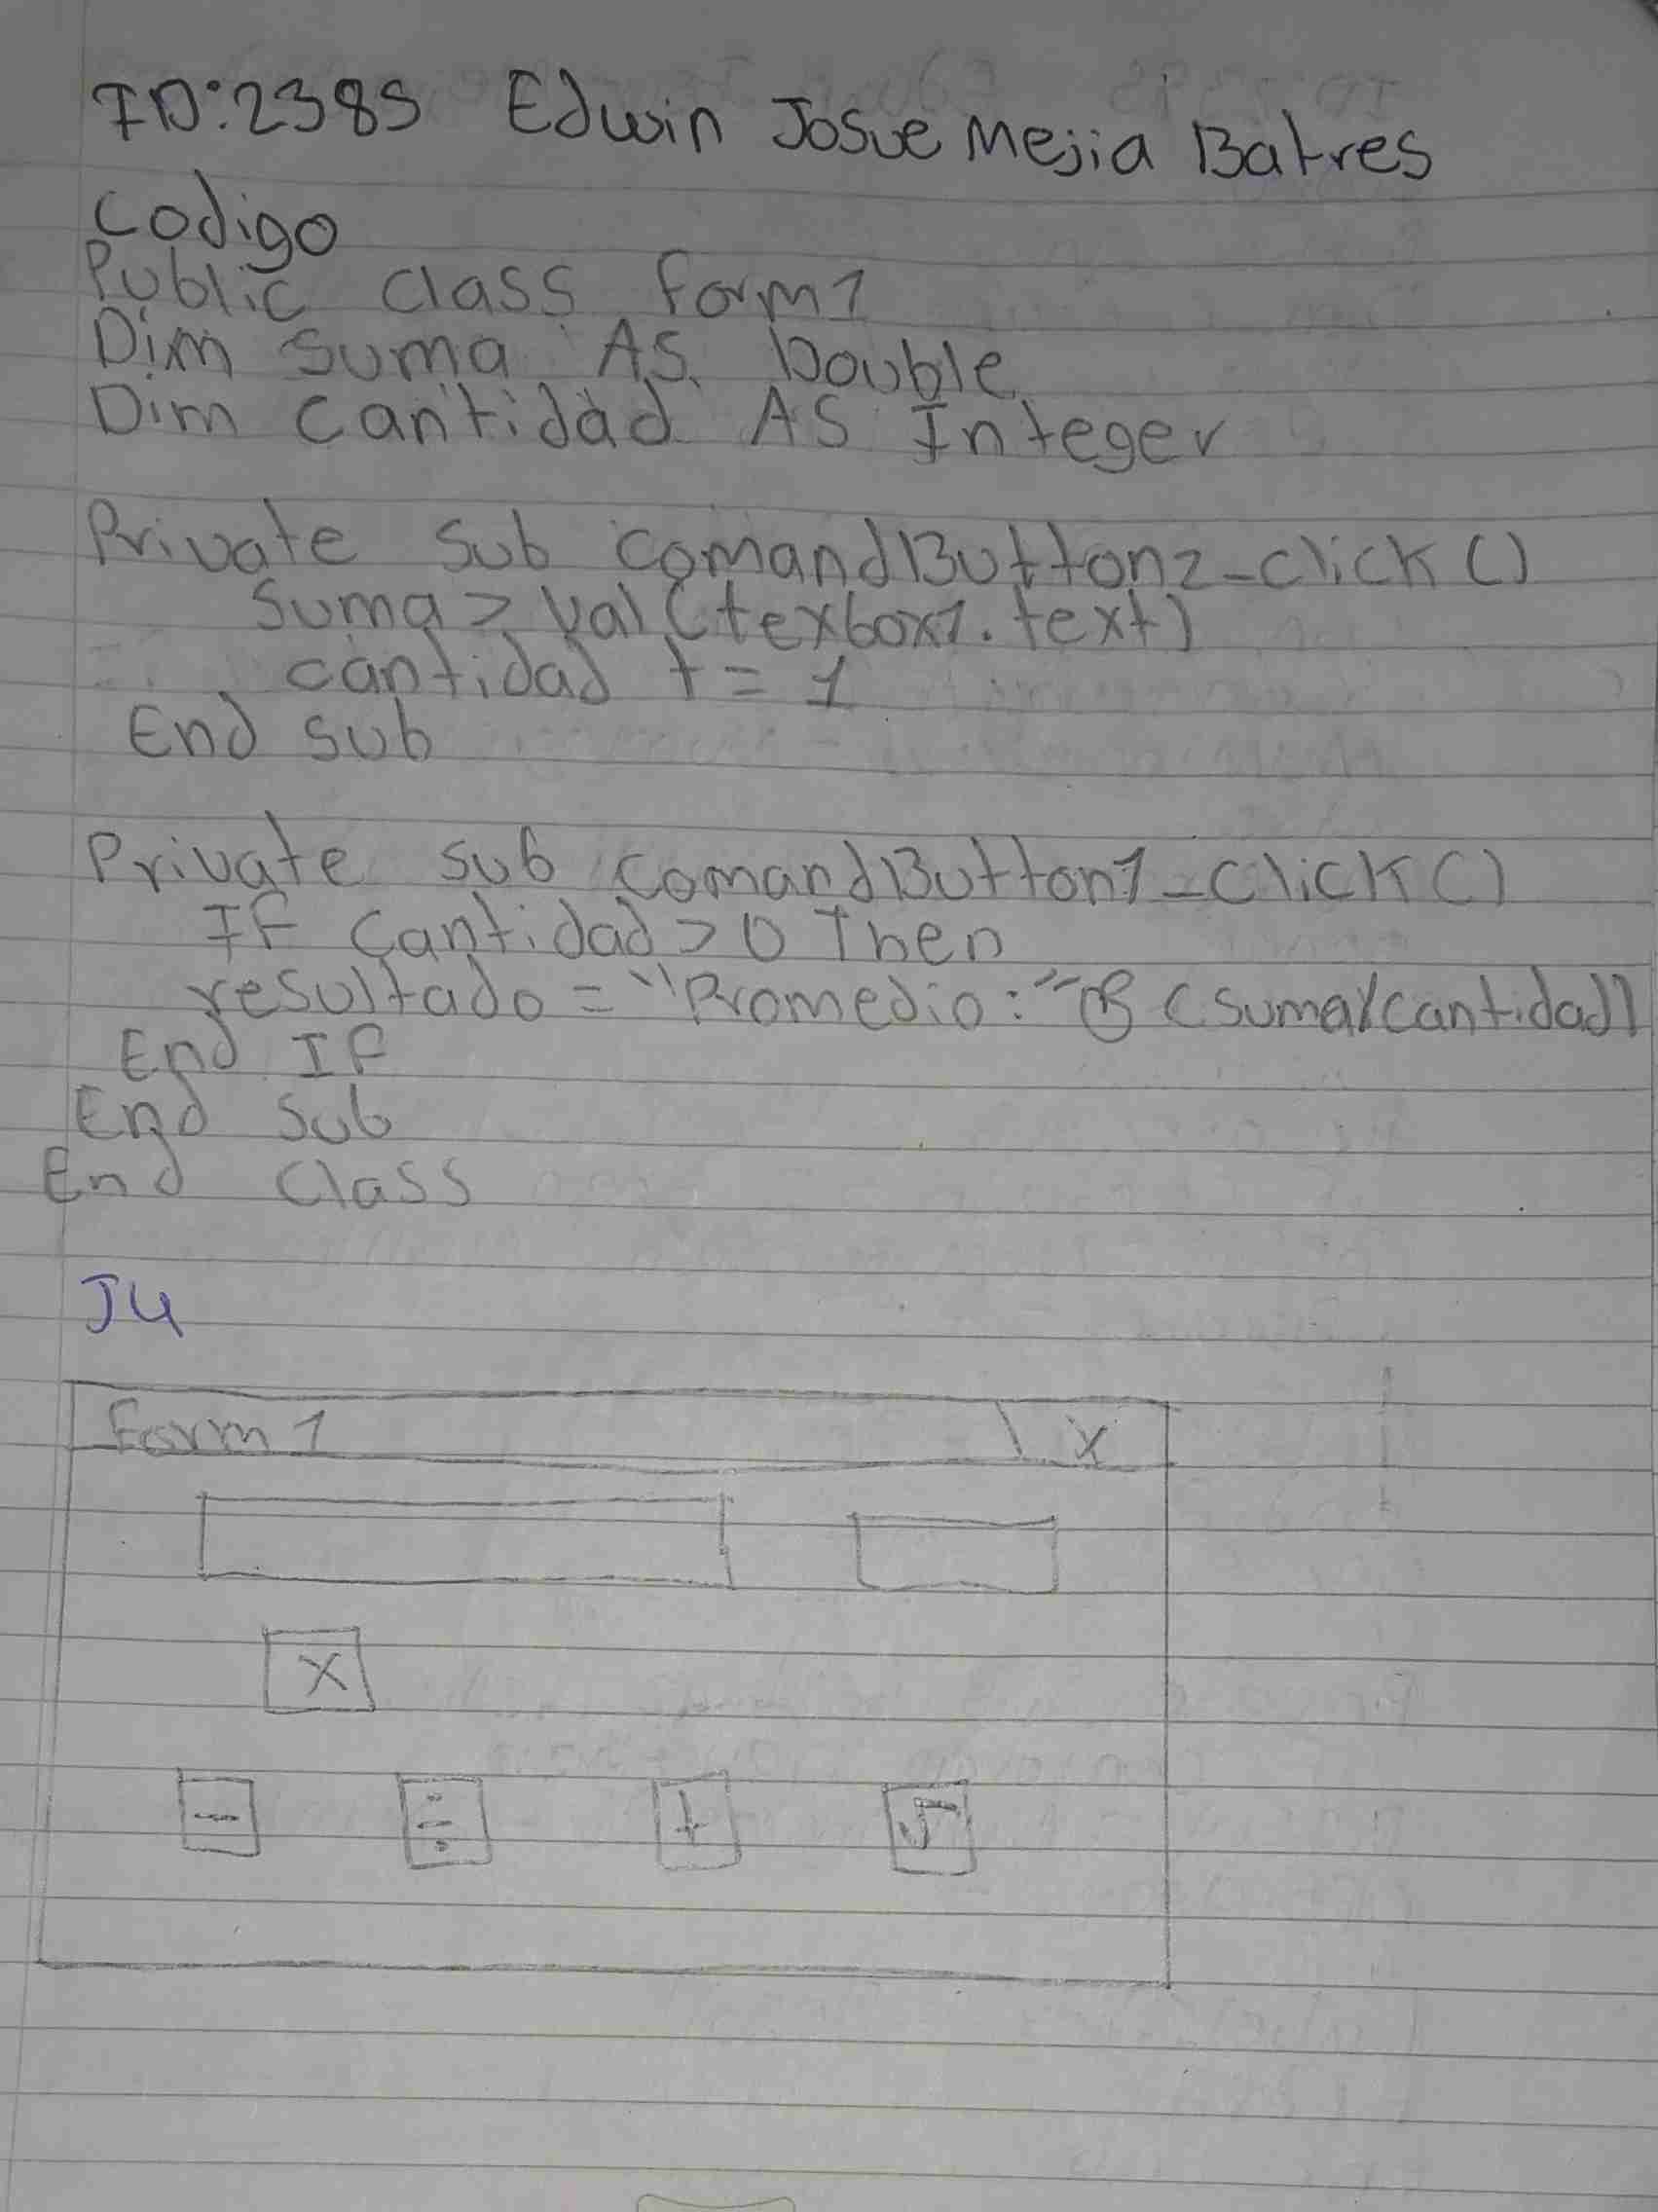 ID:2385 Edwin Josue Mejia Batres
Codigo
Public class form1
Dim suma As Double
Dim cantidad As Integer
Private sub comandButton2_click ()
suma > val (texbox1.text)
cantidad += 1
End sub
Private sub comandButton1_click ()
If cantidad > 0 Then
resultado = "Promedio: " & (suma/cantidad)
End If
End sub
End class
J4
Form 1 X
X
- ÷ + √